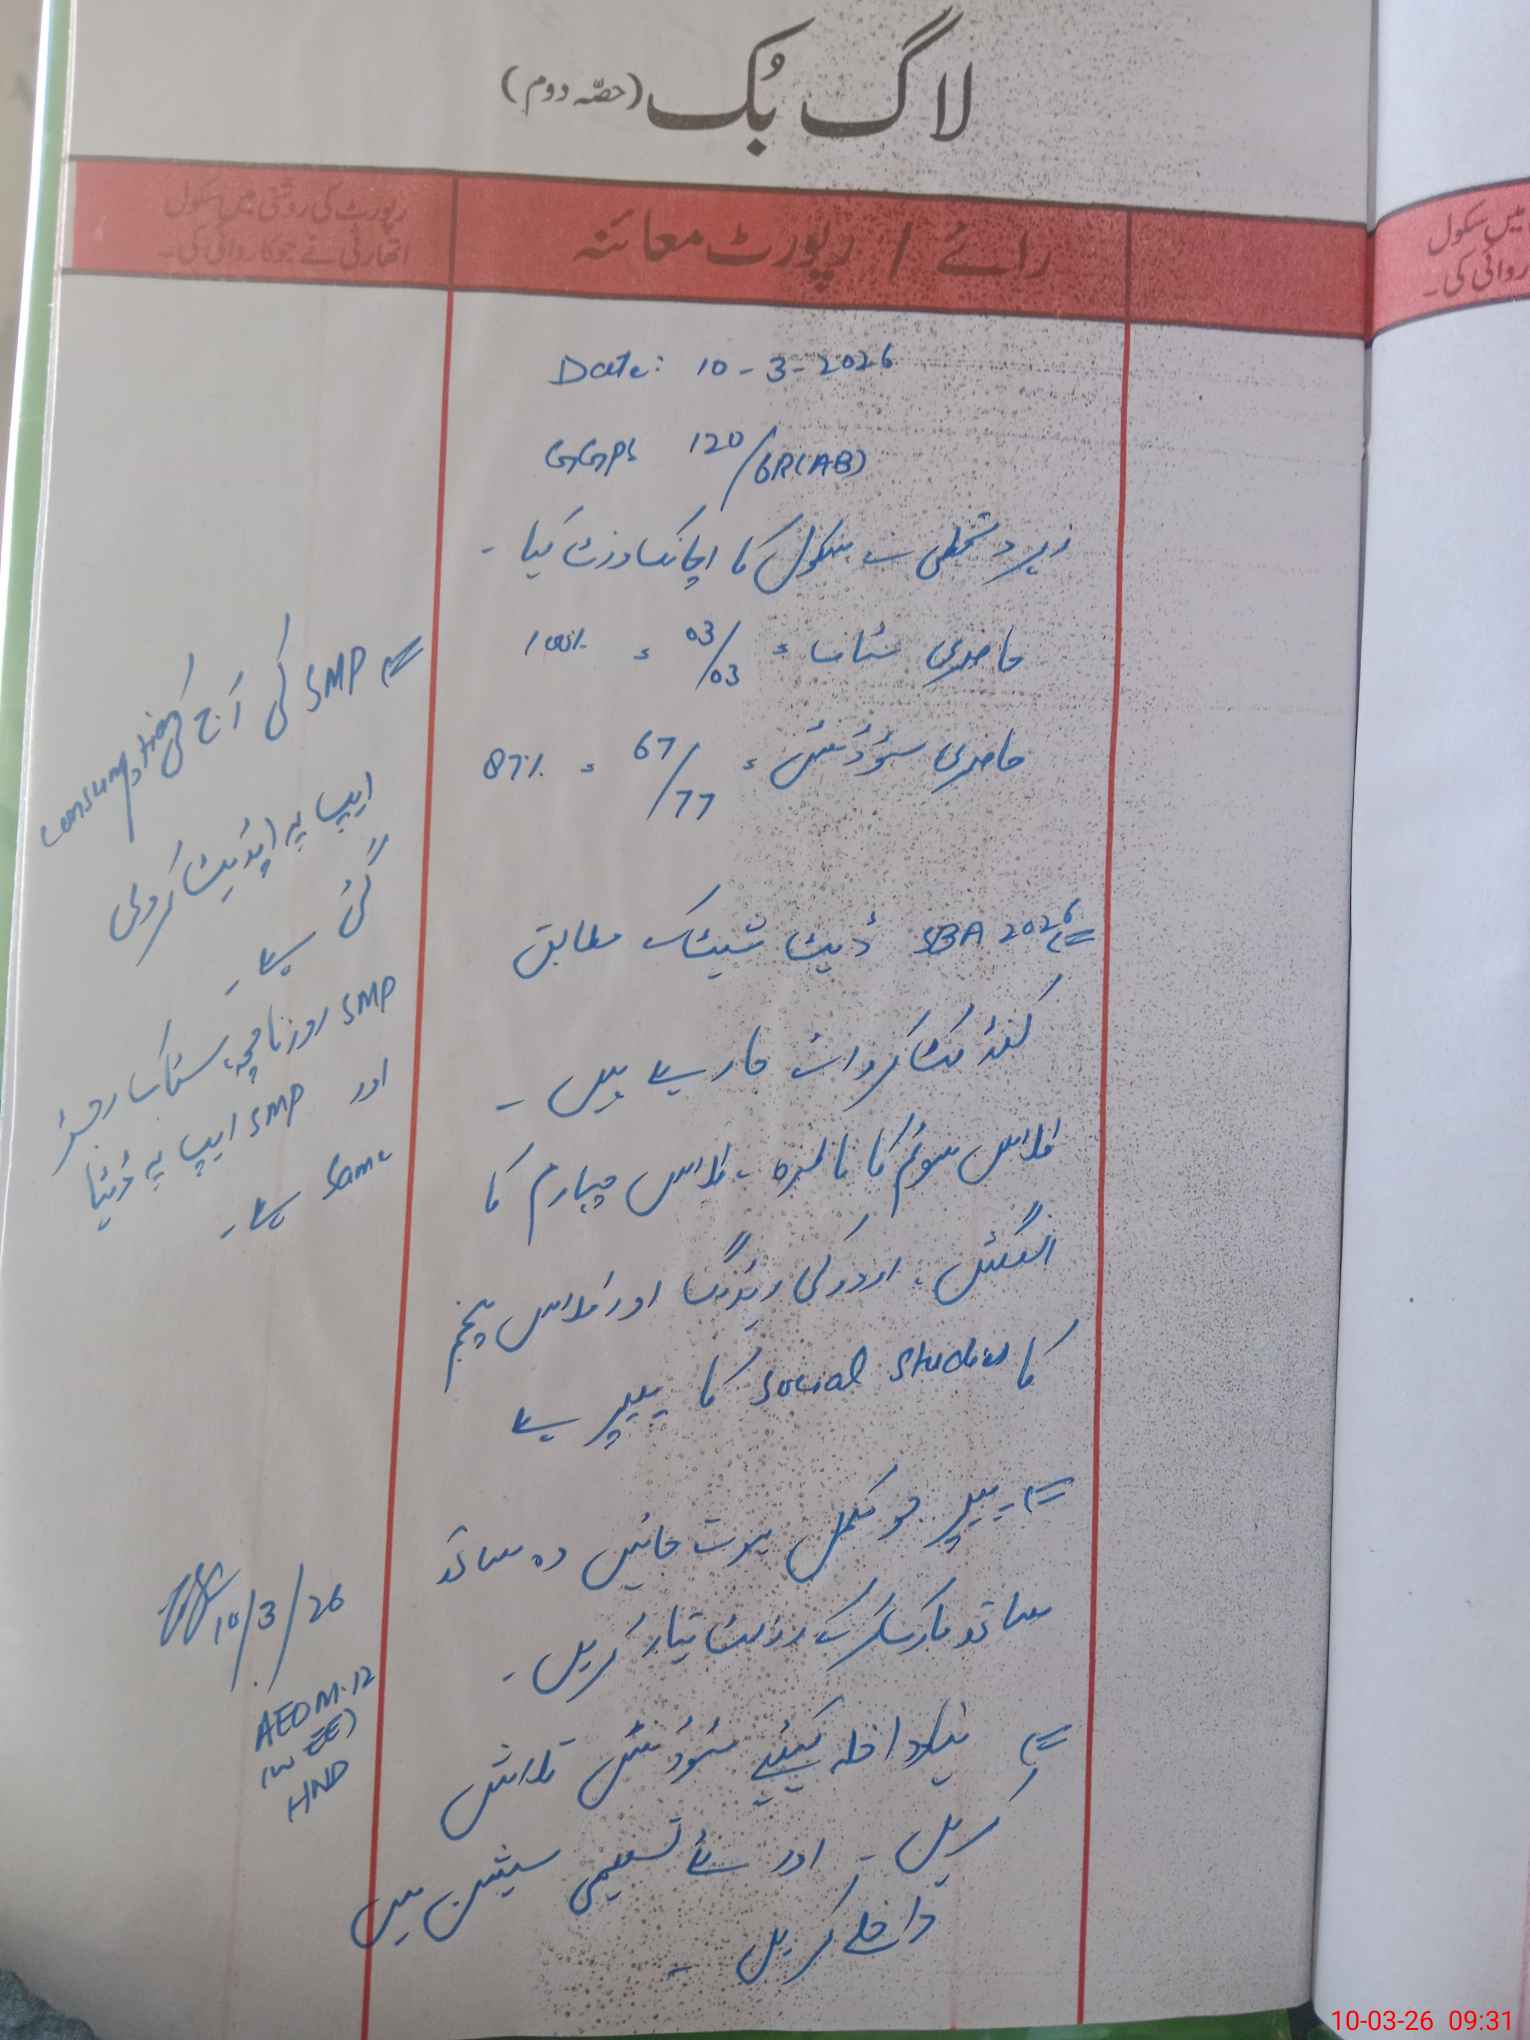 لاگ بُک (حصّہ دوم)
رائے / رپورٹ معائنہ
رپورٹ کی روشنی میں سکول
اتھارٹی نے جو کاروائی کی۔
Date: 10-3-2026
GGPS 120/6R(AB)
زیر دستخطی نے سکول کا اچانک وزٹ کیا۔
حاضری سٹاف = 03/03 = 100%
حاضری سٹوڈنٹس = 67/77 = 87%
SBA 2026 ڈیٹ شیٹ کے مطابق
کنڈکٹ کروائے جا رہے ہیں۔
کلاس سوئم کا ناظرہ، کلاس چہارم کا
انگلش، اردو کی ریڈنگ اور کلاس پنجم
کا Social Studies کا پیپر ہے
پیپر جو مکمل ہوتے جائیں وہ ساتھ
ساتھ مارک کر کے رزلٹ تیار کریں۔
نیو داخلہ کیلئے سٹوڈنٹس تلاش
کریں۔ اور نئے تعلیمی سیشن میں
داخلے کریں۔
SMP کی آج کی consumption
ایپ پہ اپڈیٹ کر دی
گئی ہے۔
SMP روزنامچہ، سٹاک رجسٹر
اور SMP ایپ پہ ڈیٹا
same ہے۔
10/3/26
AEO M-12
(W-EE)
HND
میں سکول
روائی کی۔
10-03-26 09:31